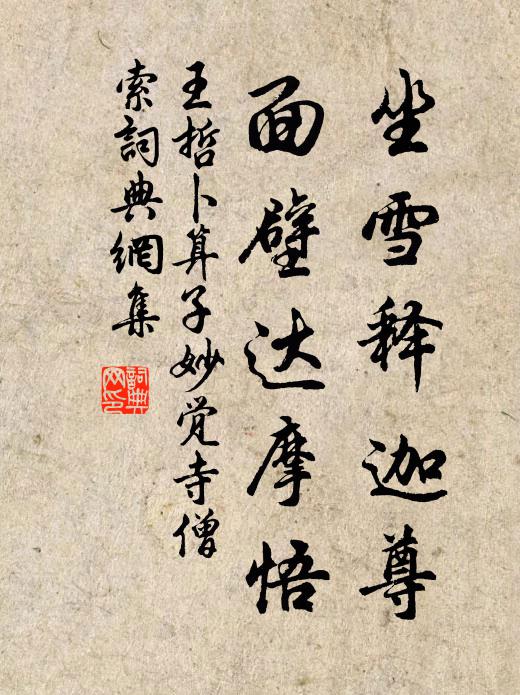 坐雪释迦尊
面壁达摩悟
王哲卜算子妙觉寺僧
索詞典網集
詞典网印